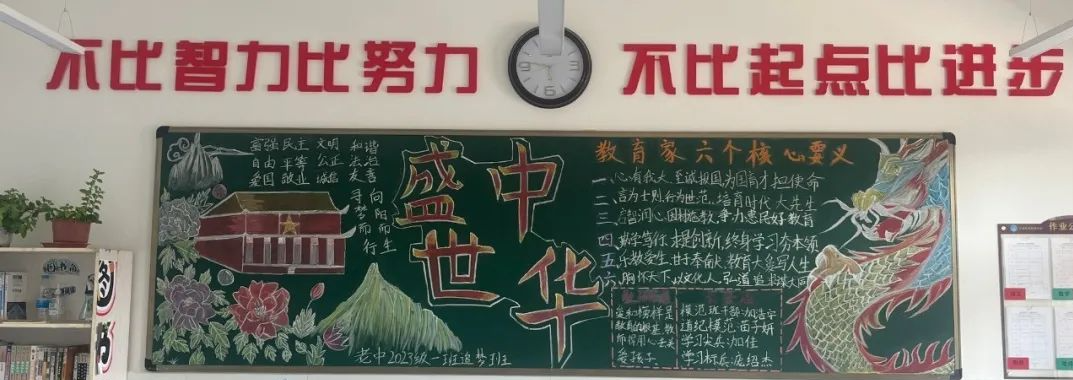 不比智力比努力 不比起点比进步
富强 民主 文明 和谐
自由 平等 公正 法治
爱国 敬业 诚信 友善
寻梦而行
向阳而生
盛世
中华
教育家六个核心要义
一、心有大我、至诚报国,为国育才担使命
二、言为士则、行为世范,培育时代大先生
三、启智润心、因材施教,争力惠民好教育
四、勤学笃行、求是创新,终身学习夯本领
五、乐教爱生、甘于奉献,教育大爱写人生
六、胸怀天下、以文化人,弘道追求谋大同
爱和榜样是
教育的根基,教
师得用心去关
爱孩子
模范班干部:
道纪模范:苗子妍
学习尖兵:
学习标兵:
老中2023级一班追梦班
图书
作业公